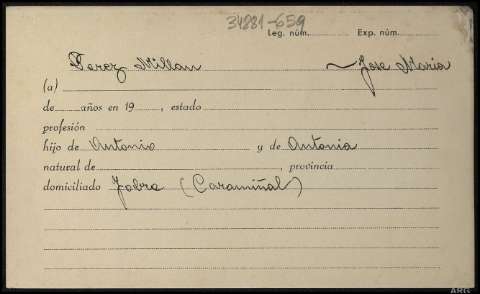 34281-659
Leg. núm. Exp. núm.
Perez Millan ~ Jose Maria
(a)
de años en 19 , estado
profesión
hijo de Antonio y de Antonia
natural de , provincia
domiciliado Jobre (Caramiñal)